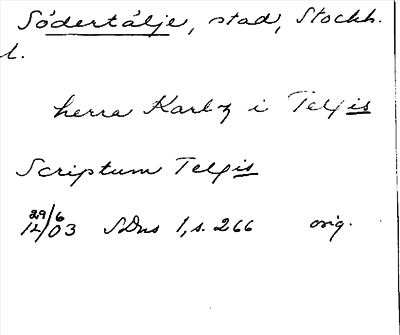 Södertälje, stad, Stockh.
l.
herra Karl i Telgis
Scriptum Telgis
29/6
1403 SDns 1, s. 266 orig.